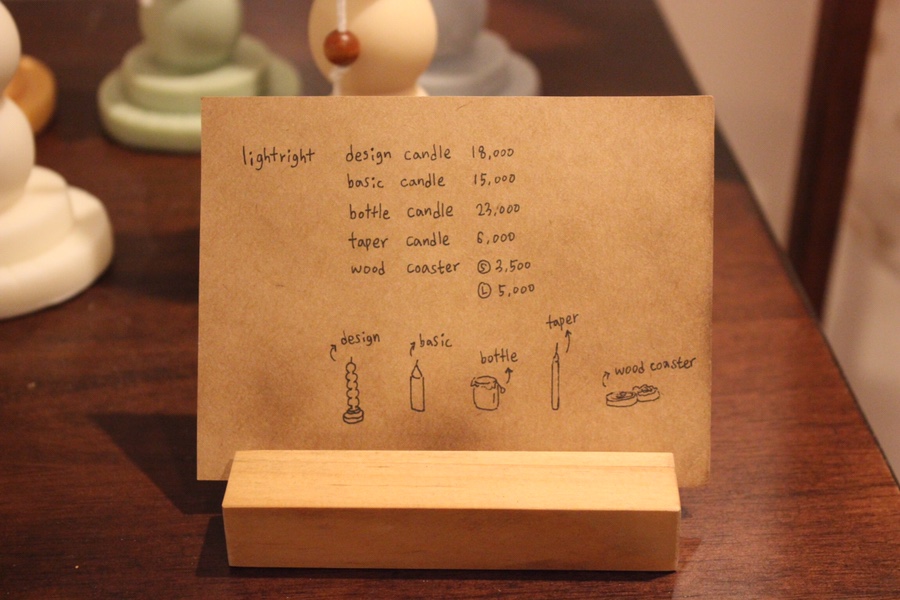 lightright design candle 18,000
basic candle 15,000
bottle candle 23,000
taper candle 6,000
wood coaster Ⓢ 3,500
Ⓛ 5,000
taper
design
basic
bottle
wood coaster